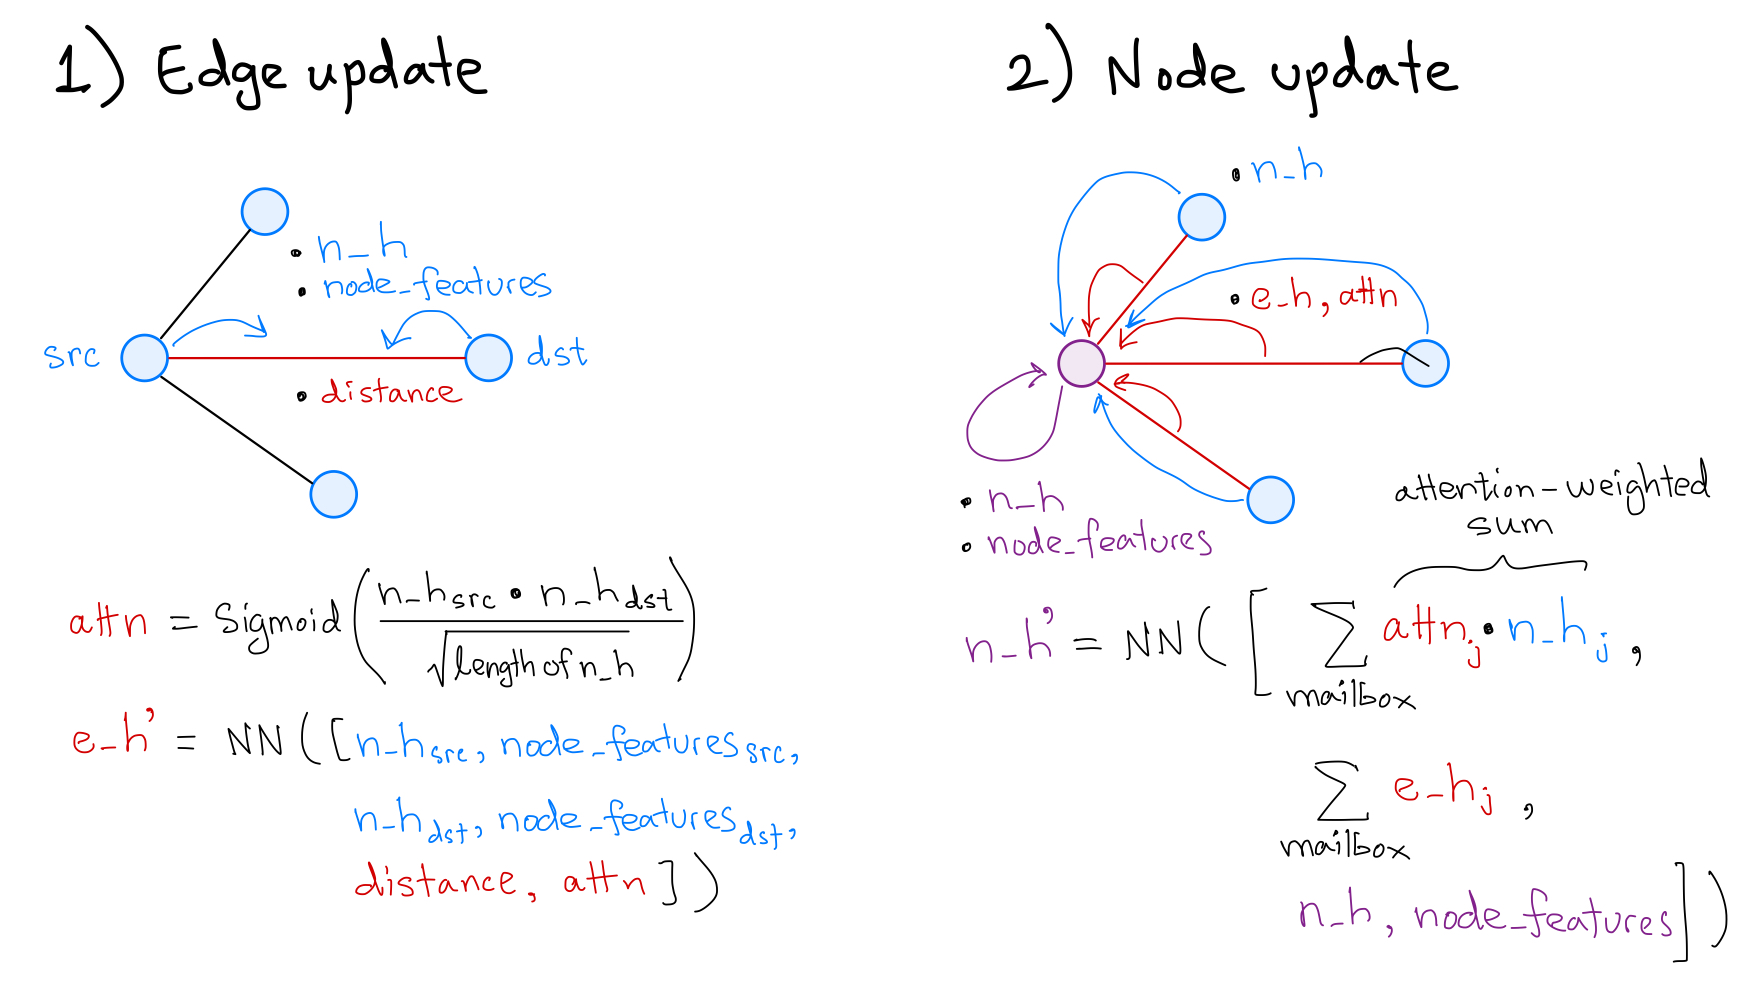 1) Edge update
• n_h
• node_features
src
dst
• distance
attn = Sigmoid( n_h src • n_h dst
√length of n_h )
e_h' = NN([n_h src, node_features src,
n_h dst, node_features dst,
distance, attn])
2) Node update
• n_h
• e_h, attn
• n_h
• node_features
attention-weighted
sum
n_h' = NN([ ∑ attn j • n_h j ,
mailbox
∑ e_h j ,
mailbox
n_h, node_features])